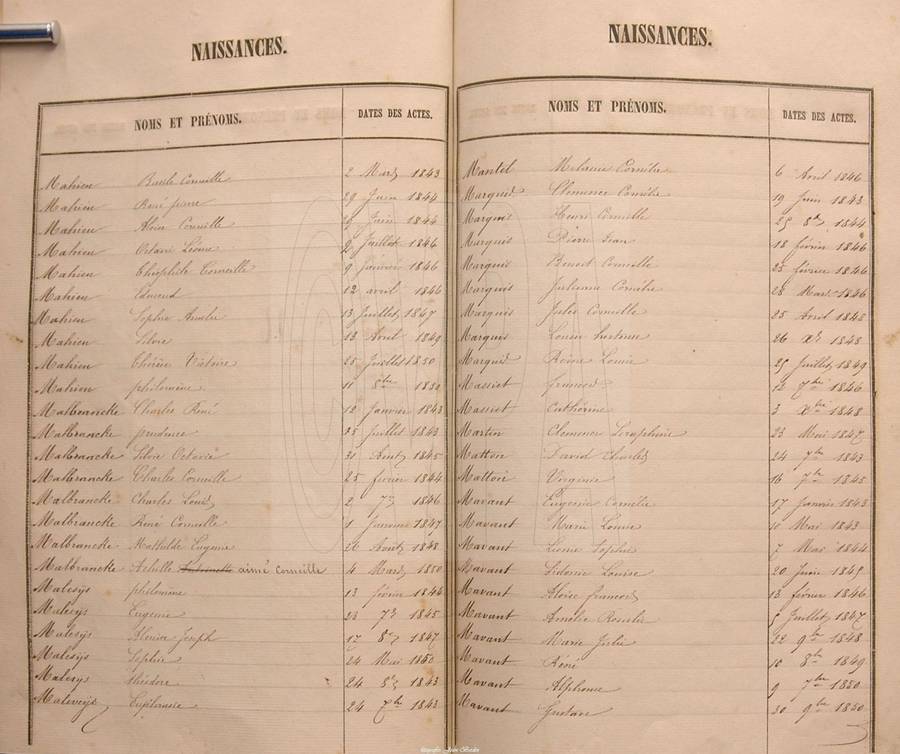 NAISSANCES.
NOMS ET PRÉNOMS. DATES DES ACTES.
Mahieu Basile Corneille 2 Mars 1843
Mahieu René pierre 29 Juin 1844
Mahieu Aloïse Corneille Juin 1844
Mahieu Octavie Léonie 2 Juillet 1846
Mahieu Théophile Corneille 9 Janvier 1846
Mahieu Edmond 12 avril 1846
Mahieu Sophie Amélie 13 Juillet 1847
Mahieu 13 Avril 1849
Mahieu Victoire 25 Juillet 1850
Mahieu philomène 11 8bre 1850
Malbrancke Charles René 12 Janvier 1843
Malbrancke prudence 25 Juillet 1843
Malbrancke Silvie Octavie 31 Août 1845
Malbrancke Charles Corneille 25 février 1844
Malbrancke Charles Louis 2 7re 1846
Malbrancke René Corneille 1 Janvier 1847
Malbrancke Mathilde Eugénie 26 Août 1848
Malbrancke Achille aimé Corneille 4 Mars 1850
Malesys philomène 13 février 1844
Malesys Eugénie 23 7re 1845
Malesys Joseph 17 8re 1847
Malesys Sophie 24 Mai 1850
Malesys 24 8re 1843
Euphrasie 24 7bre 1843
NAISSANCES.
NOMS ET PRÉNOMS. DATES DES ACTES.
Mantel Mélanie Cornélie 6 Avril 1846
Marquis Clémence Cornélie 19 Juin 1843
Marquis Henri Corneille 25 8re 1844
Marquis Pierre Jean 18 février 1846
Marquis Benoit Corneille 25 février 1846
Marquis Julienne Cornélie 28 Mars 1846
Marquis Jules Corneille 25 Avril 1848
Marquis Louise 26 Xre 1843
Marquis Louise 25 Juillet 1849
Massiet francois 12 7bre 1846
Massiet Cathérine 3 Xbre 1848
Martin Clémence Séraphine 23 Mai 1847
Matton David Charles 24 7bre 1843
Virginie 16 7bre 1845
Mavaut Eugénie Cornélie 17 Janvier 1843
Mavaut Marie Louise 10 Mai 1843
Mavaut Sophie 7 Mai 1844
Mavaut Sidonie Louise 20 Juin 1845
Mavaut Aloïse francois 13 février 1846
Mavaut Amélie Rosalie 5 Juillet 1847
Mavaut Marie Julie 22 9bre 1848
Mavaut Réné 10 8bre 1849
Mavaut Alphonse 9 7bre 1850
Mavaut Gustave 30 9bre 1850